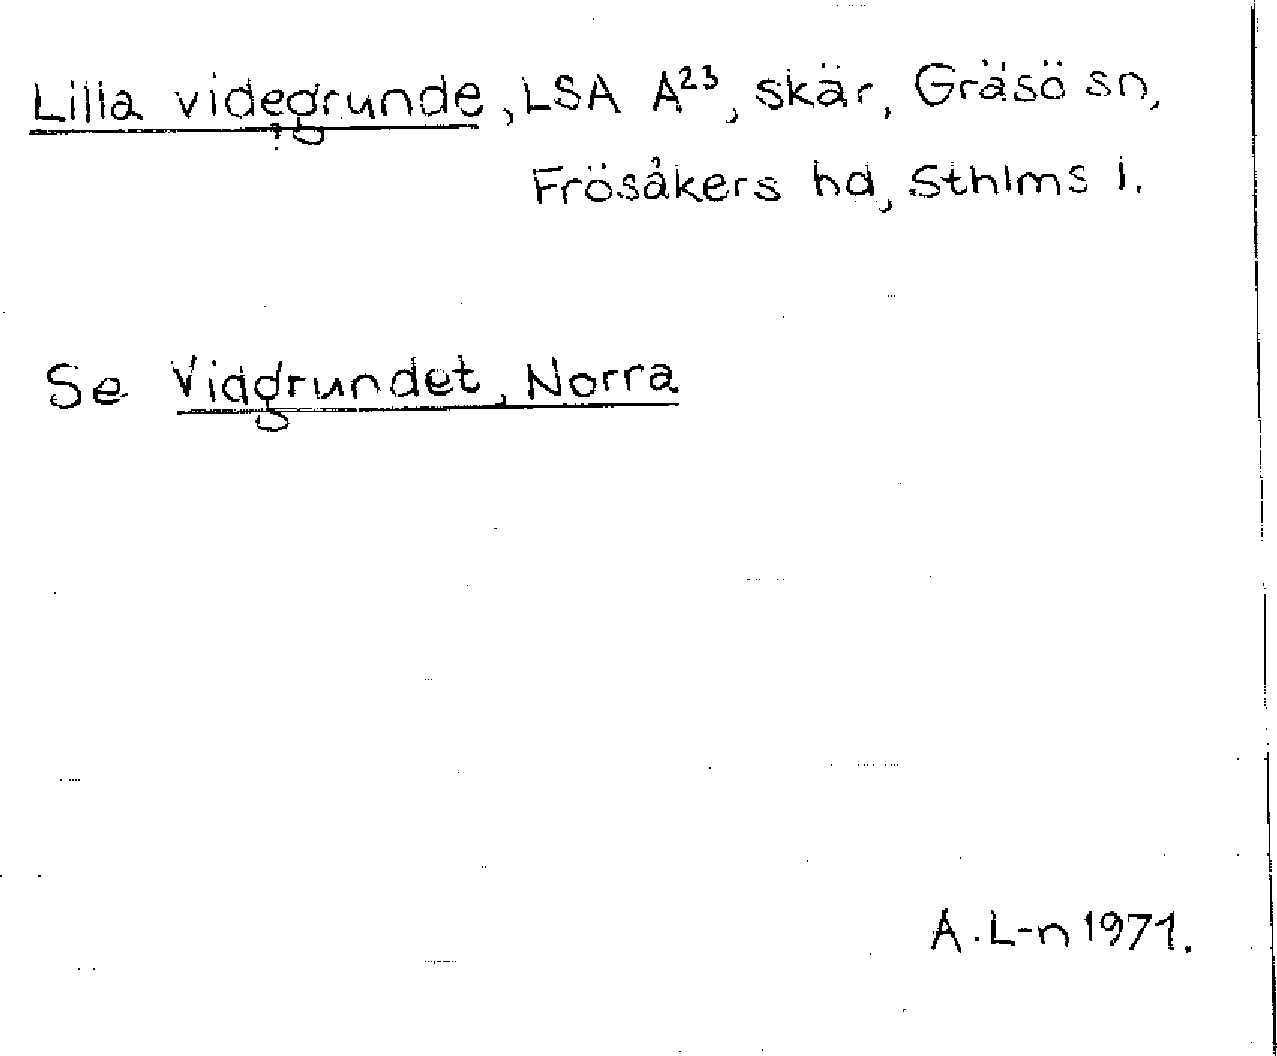 Lilla videgrunde, LSA A²³, skär, Gräsö sn,
Frösåkers hd, Sthlms l.
Se Vidgrundet, Norra
A. L-n 1971.